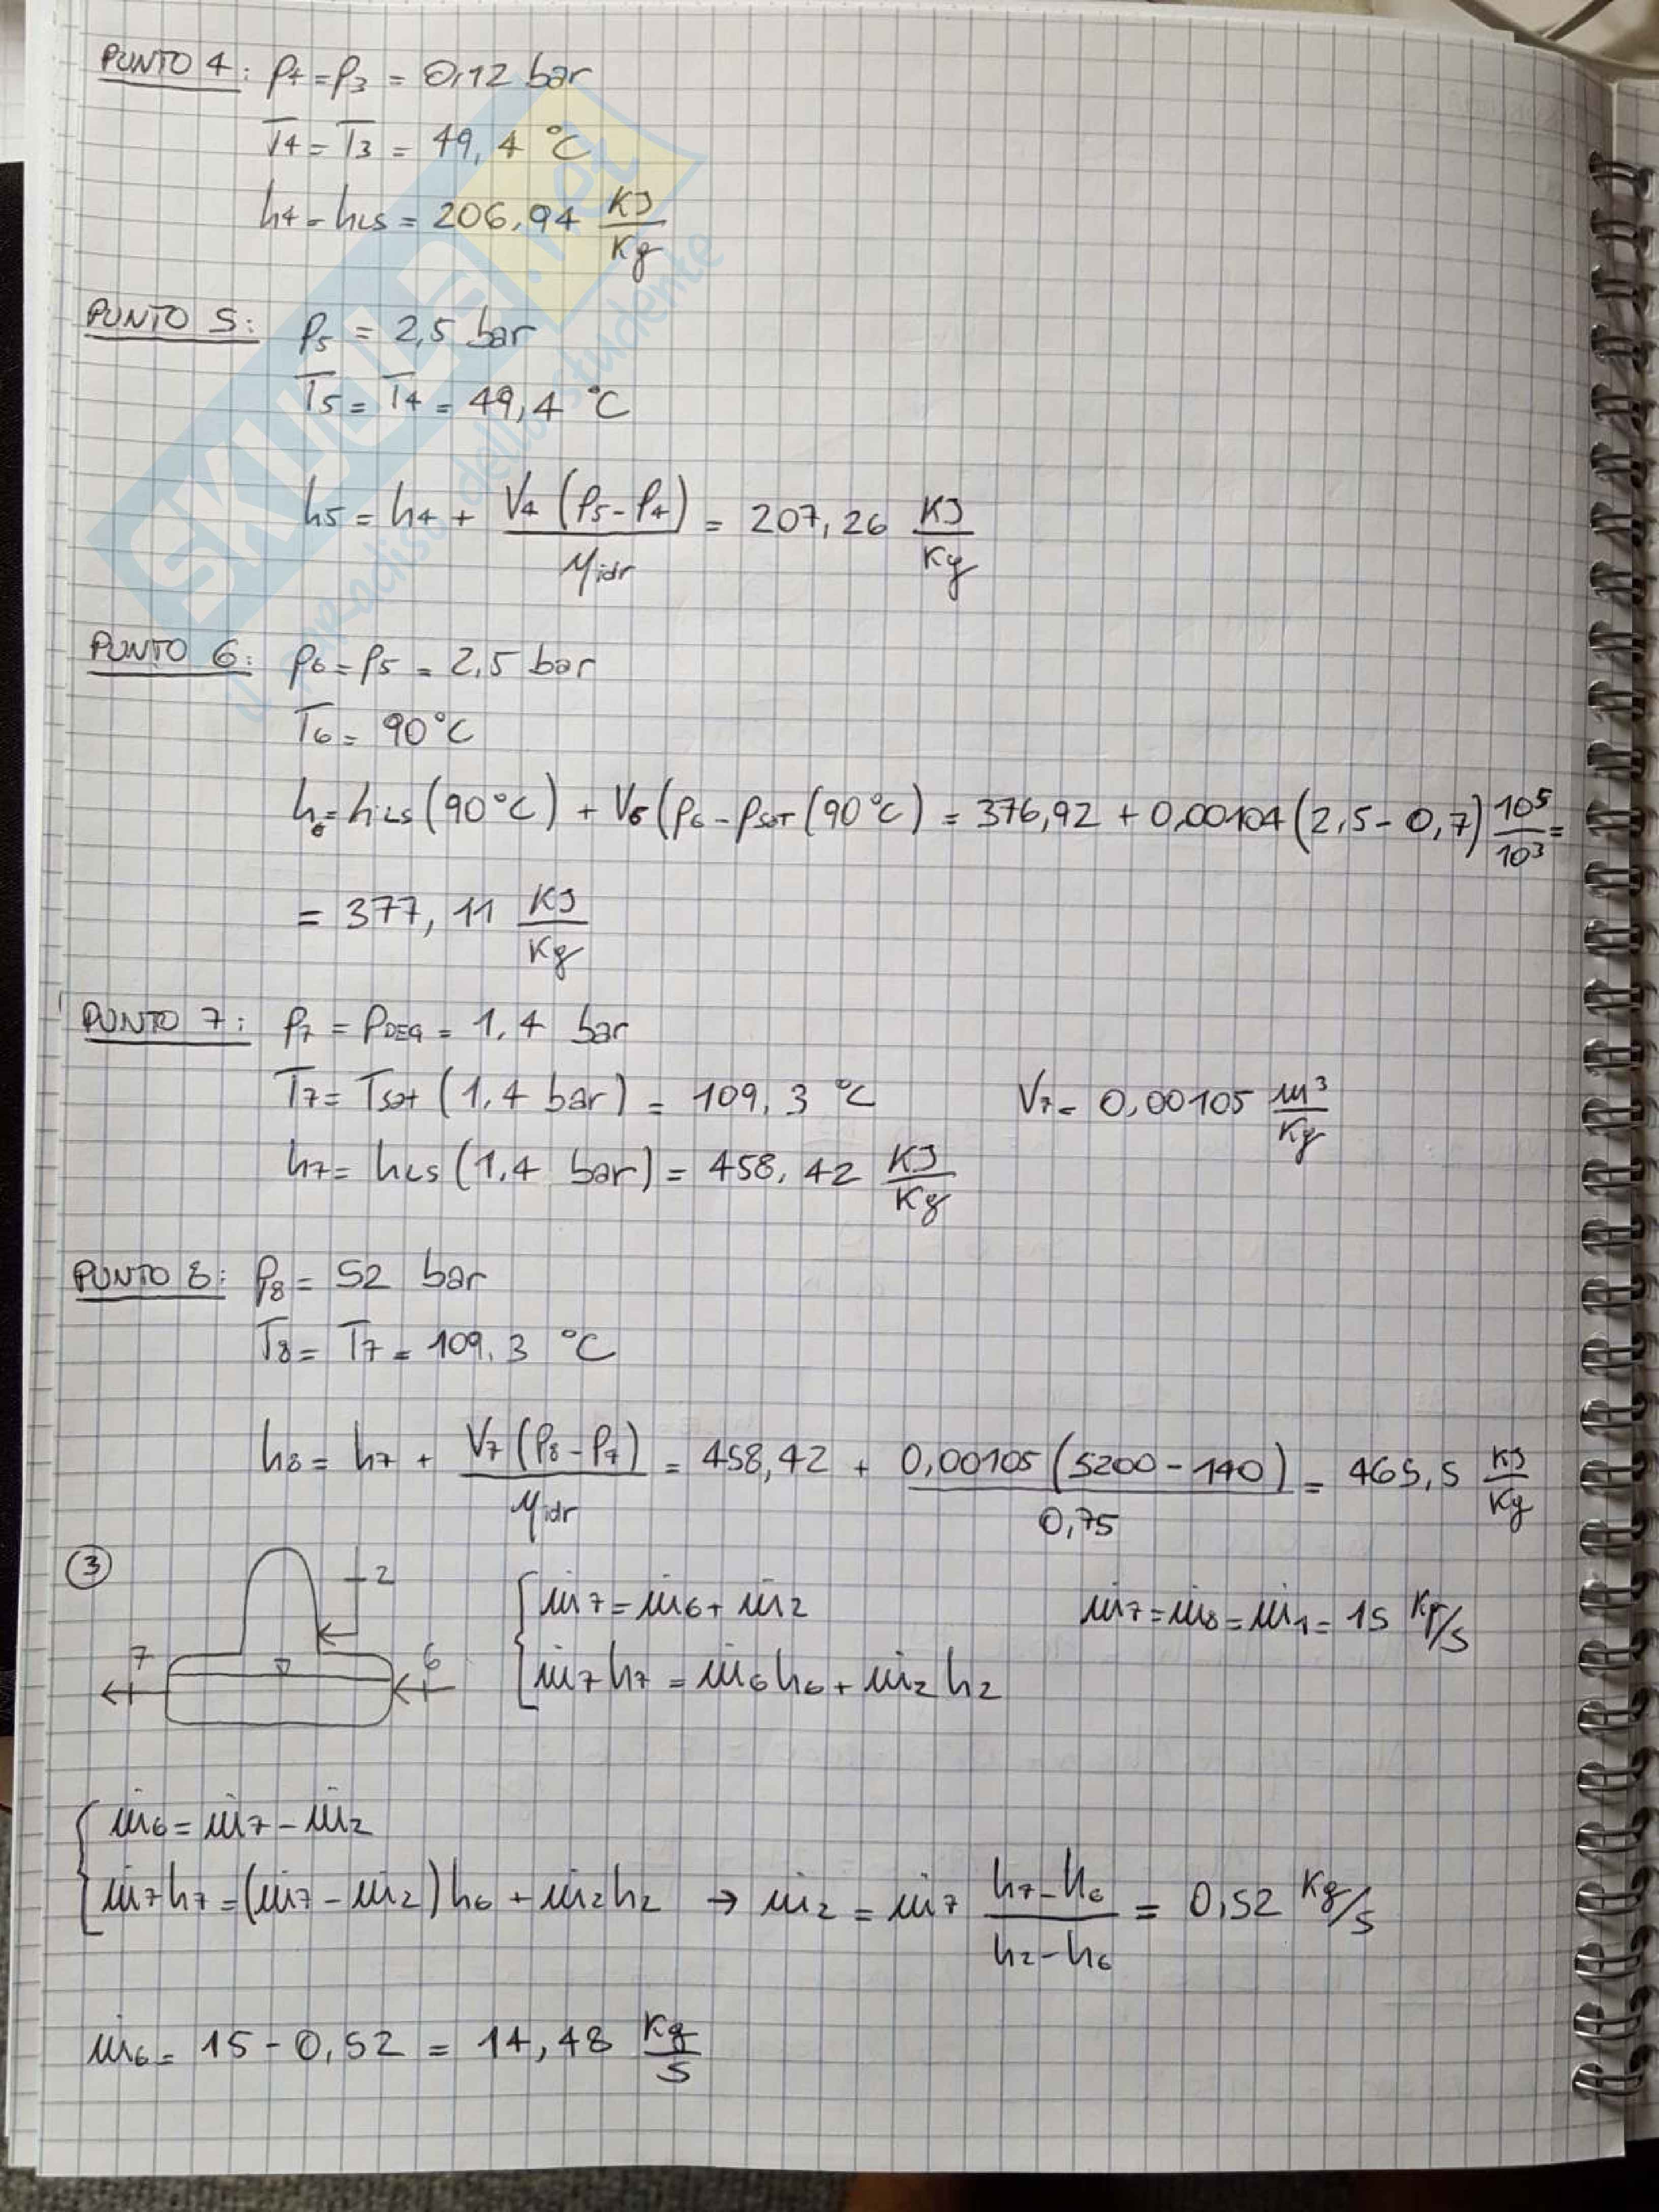 PUNTO 4: P4 = P3 = 0,12 bar
T4 = T3 = 49,4 °C
h4 = hLS = 206,94 KJ/Kg
PUNTO 5: P5 = 2,5 bar
T5 = T4 = 49,4 °C
h5 = h4 + V4 (P5 - P4) / ηidr = 207,26 KJ/Kg
PUNTO 6: P6 = P5 = 2,5 bar
T6 = 90°C
h6 = hLS (90°C) + V6 (P6 - Psat (90°C) = 376,92 + 0,00104 (2,5 - 0,7) 10^5/10^3 =
= 377,11 KJ/Kg
PUNTO 7: P7 = PDEG = 1,4 bar
T7 = Tsat (1,4 bar) = 109,3 °C V7 = 0,00105 m³/Kg
h7 = hLS (1,4 bar) = 458,42 KJ/Kg
PUNTO 8: P8 = 52 bar
T8 = T7 = 109,3 °C
h8 = h7 + V7 (P8 - P7) / ηidr = 458,42 + 0,00105 (5200 - 140) / 0,75 = 465,5 KJ/Kg
3
2
7
6
ṁ7 = ṁ6 + ṁ2 ṁ7 = ṁ8 = ṁ1 = 15 Kg/s
ṁ7 h7 = ṁ6 h6 + ṁ2 h2
ṁ6 = ṁ7 - ṁ2
ṁ7 h7 = (ṁ7 - ṁ2) h6 + ṁ2 h2 → ṁ2 = ṁ7 (h7 - h6) / (h2 - h6) = 0,52 Kg/s
ṁ6 = 15 - 0,52 = 14,48 Kg/s
SKUOLA.net
il paradiso dello studente